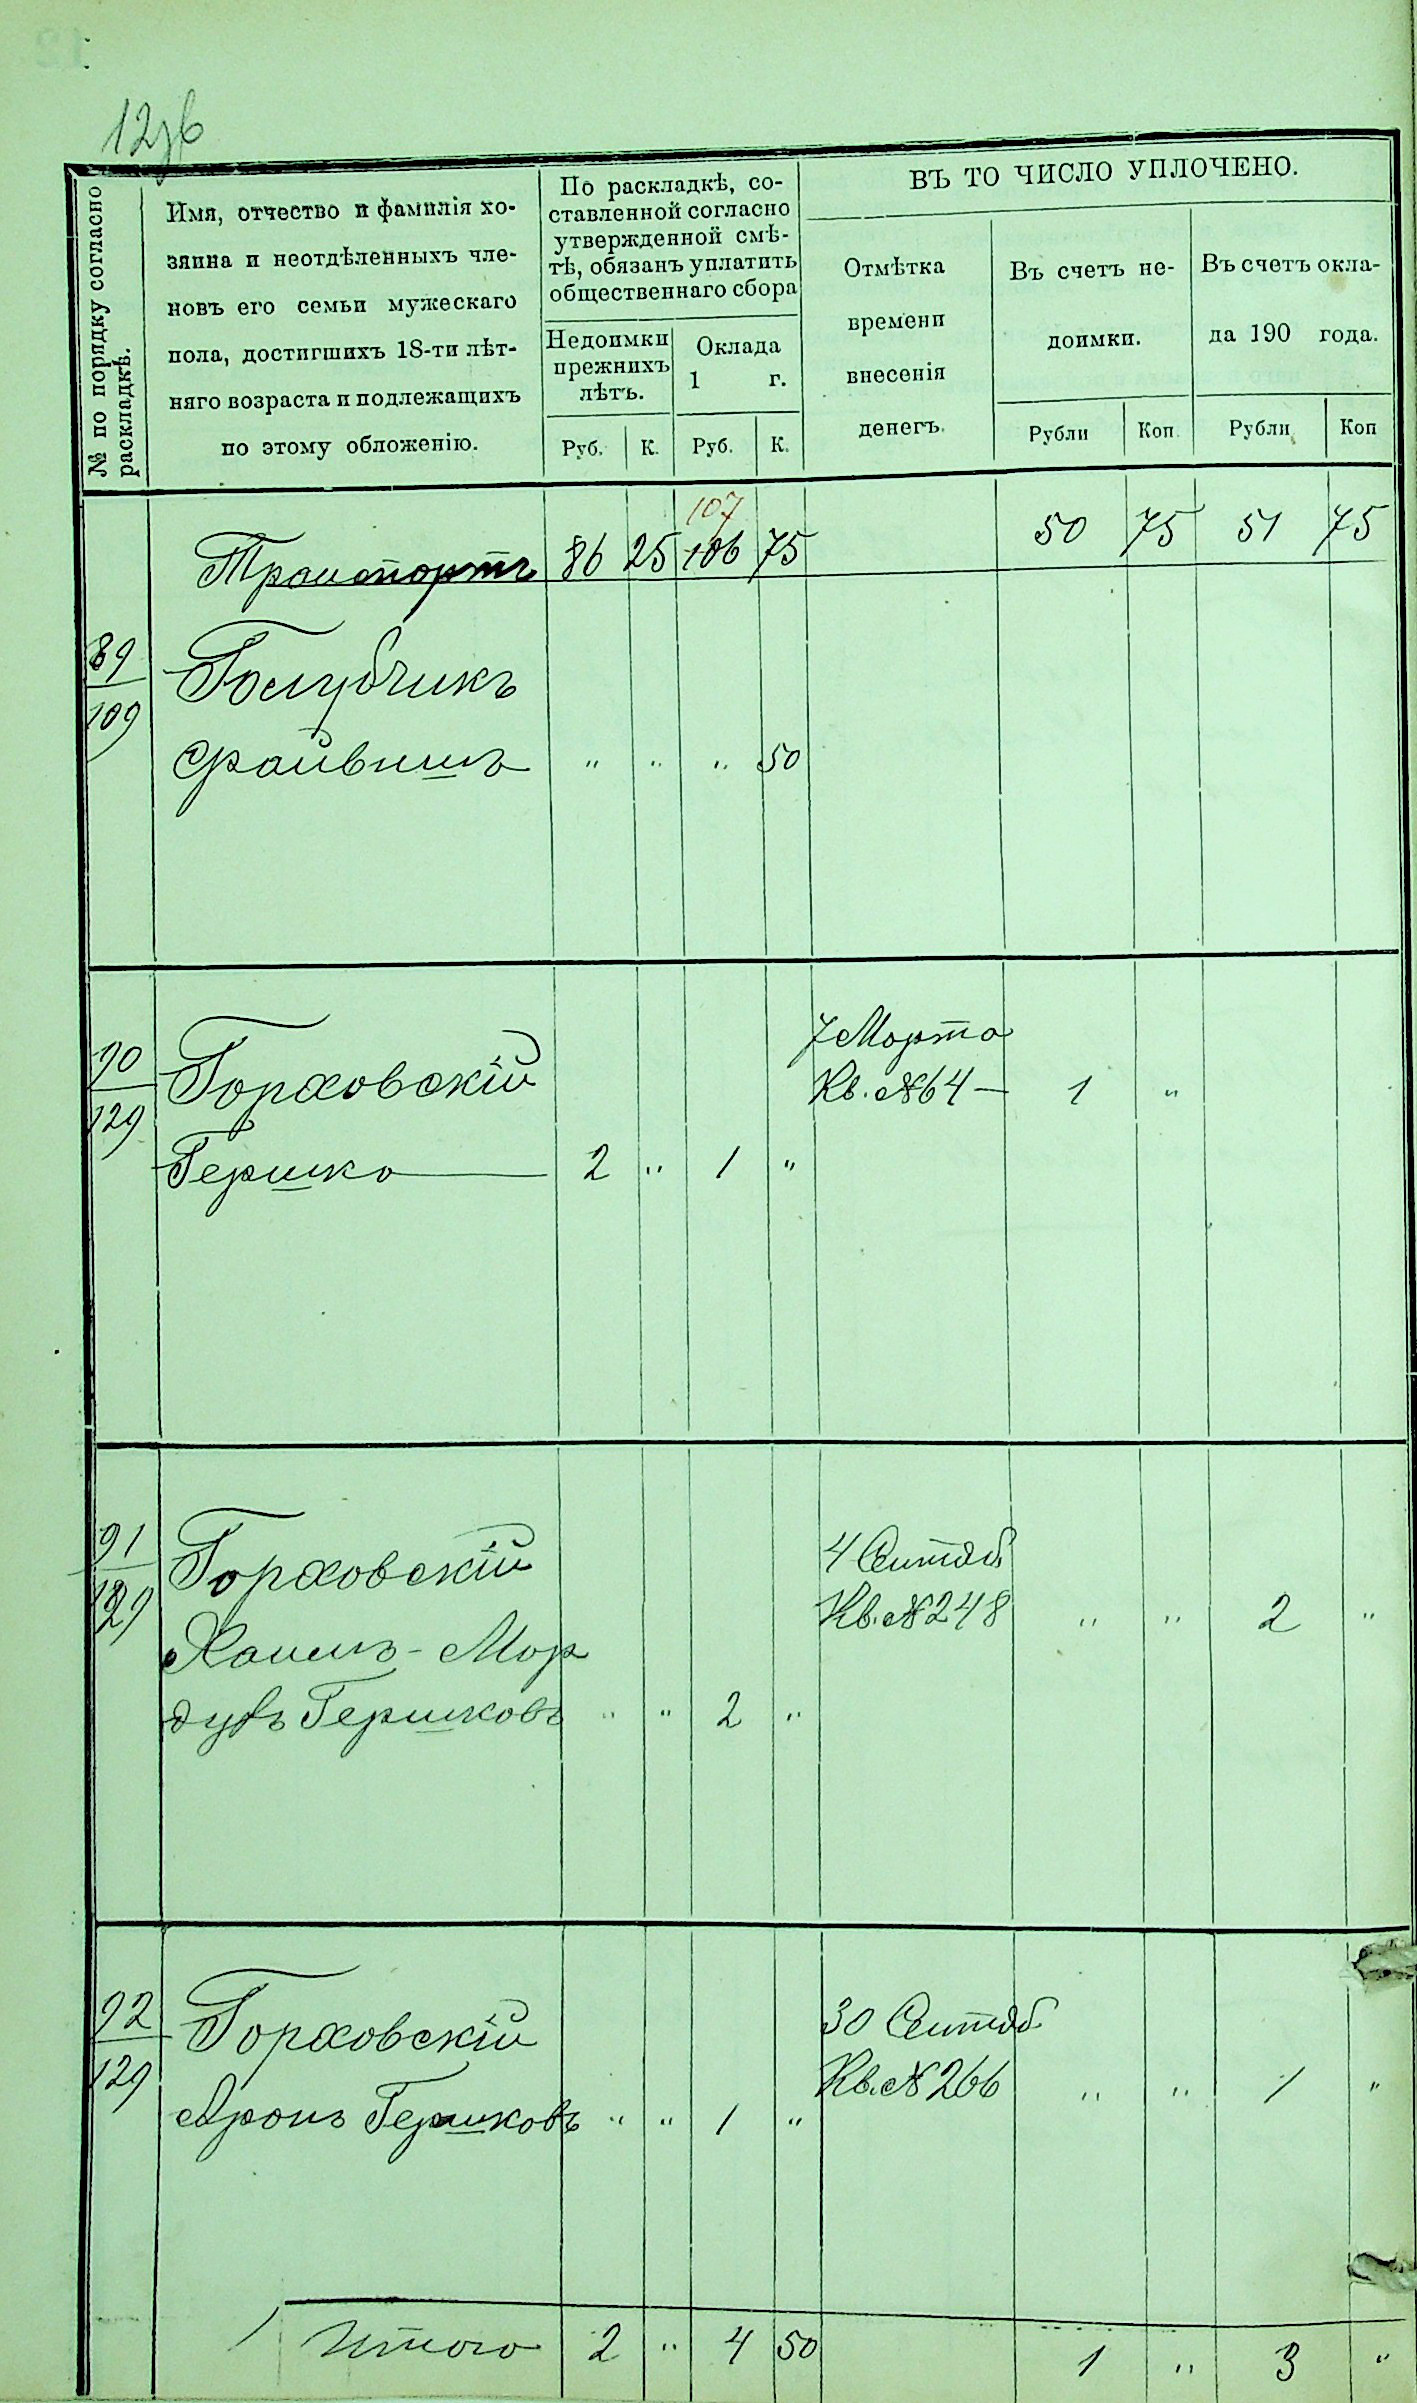 12об
№ по порядку согласно раскладкѣ.
Имя, отчество и фамилія хо-
зяина и неотдѣленныхъ чле-
новъ его семьи мужескаго
пола, достигшихъ 18-ти лѣт-
няго возраста и подлежащихъ
по этому обложенію.
По раскладкѣ, со-
ставленной согласно
утвержденной смѣ-
тѣ, обязанъ уплатить
общественнаго сбора
Недоимки
прежнихъ
лѣтъ.
Оклада
1 г.
Руб. К. Руб. К.
ВЪ ТО ЧИСЛО УПЛОЧЕНО.
Отмѣтка
времени
внесенія
денегъ.
Въ счетъ не-
доимки.
Въ счетъ окла-
да 190 года.
Рубли Коп. Рубли Коп
107
Транспортъ 86 25 106 75 50 75 51 75
89
109
Голубчикъ
Срайвишъ " " " 50
90
129
Горховскій
Гершко 2 " 1 "
7 Марта
Кв. №64 — 1 "
91
129
Горховскій
Хаимъ-Мор
духъ Гершковъ " " 2 "
4 Сентяб
Кв. №248 " " 2 "
92
129
Горховскій
Аронъ Гершковъ " " 1 "
30 Сентяб
Кв. №266 " " 1 "
Итого 2 " 4 50 1 " 3 "